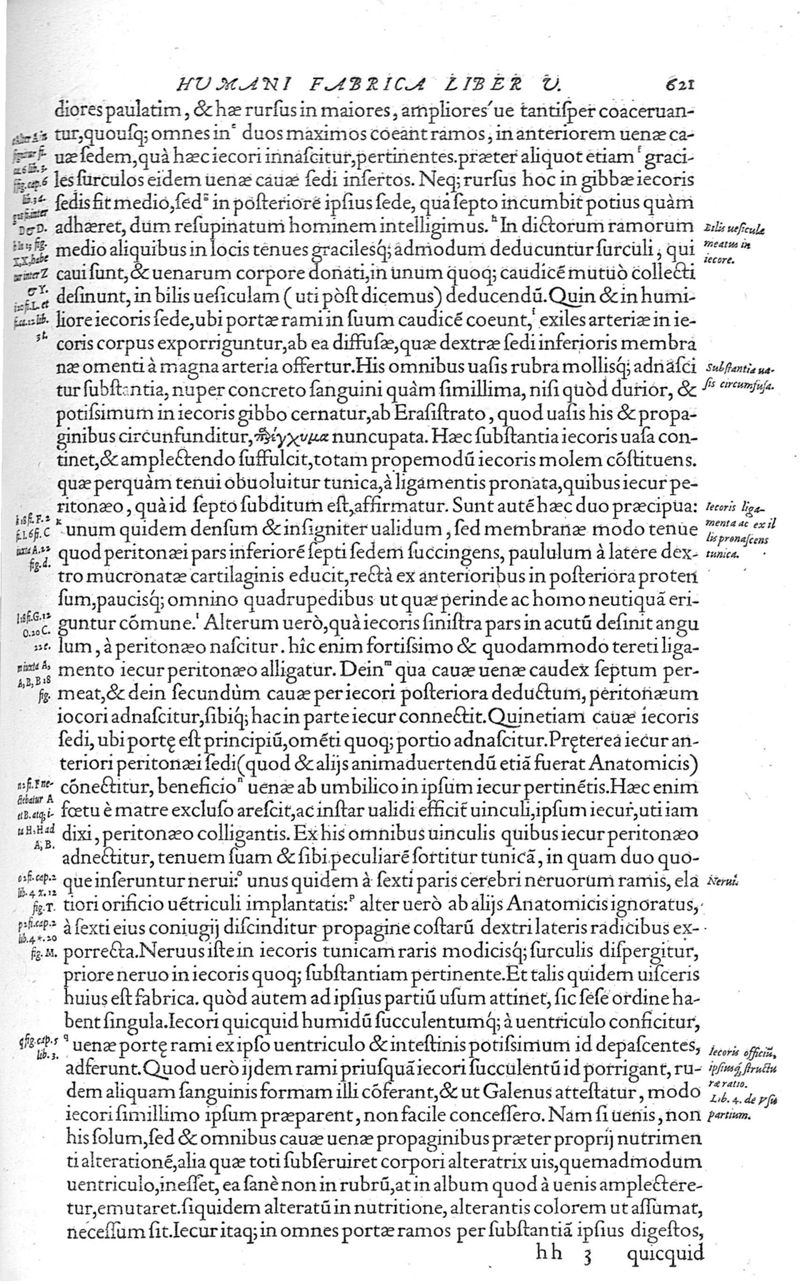 HUMANI FABRICA LIBER V. 621
diores paulatim, & hæ rursus in maiores, ampliores´ue tantisper coaceruan-
tur, quousq; omnes in ᵉ duos maximos coeant ramos, in anteriorem uenæ ca-
uæ sedem, quà hæc iecori innascitur, pertinentes. præter aliquot etiam ᶠ graci-
les surculos eidem uenæ cauæ sedi insertos. Neq; rursus hoc in gibbæ iecoris
sedis fit medio, sed ᵍ in posteriore ipsius sede, qua septo incumbit potius quàm
adhæret, dum resupinatum hominem intelligimus. ʰ In dictorum ramorum
medio aliquibus in locis tenues gracilesq́; admodum deducuntur surculi, qui
caui sunt, & uenarum corpore donati, in unum quoq; caudicẽ mutuò collecti
desinunt, in bilis uesiculam (uti pòst dicemus) deducendũ. Quin & in humi-
liore iecoris sede, ubi portæ rami in suum caudicẽ coeunt, ⁱ exiles arteriæ in ie-
coris corpus exporriguntur, ab ea diffusæ, quæ dextræ sedi inferioris membra
næ omenti à magna arteria offertur. His omnibus uasis rubra mollisq́; adnasci
tur substantia, nuper concreto sanguini quàm simillima, nisi quòd durior, &
potissimum in iecoris gibbo cernatur, ab Erasistrato, quod uasis his & propa-
ginibus circunfunditur, παρέγχυμα nuncupata. Hæc substantia iecoris uasa con-
tinet, & amplectendo suffulcit, totam propemodũ iecoris molem cõstituens.
quæ perquàm tenui obuoluitur tunica, à ligamentis pronata, quibus iecur pe-
ritonæo, quà id septo subditum est, affirmatur. Sunt autẽ hæc duo præcipua:
ᵏ unum quidem densum & insigniter ualidum, sed membranæ modo tenue
quod peritonæi pars inferiorẽ septi sedem succingens, paululum à latere dex-
tro mucronatæ cartilaginis educit, rectà ex anterioribus in posteriora proten
sum, paucisq́; omnino quadrupedibus ut quæ perinde ac homo neutiquã eri-
guntur cõmune. ˡ Alterum uerò, quà iecoris sinistra pars in acutũ desinit angu
lum, à peritonæo nascitur. hîc enim fortissimo & quodammodo tereti liga-
mento iecur peritonæo alligatur. Dein ᵐ qua cauæ uenæ caudex septum per-
meat, & dein secundùm cauæ per iecori posteriora deductum, peritonæum
iocori adnascitur, sibiq́; hac in parte iecur connectit. Quinetiam cauæ iecoris
sedi, ubi portę est principiũ, omẽti quoq; portio adnascitur. Pręterea iecur an-
teriori peritonæi sedi (quod & alijs animaduertendũ etiã fuerat Anatomicis)
cõnectitur, beneficio ⁿ uenæ ab umbilico in ipsum iecur pertinẽtis. Hæc enim
fœtu è matre excluso arescit, ac instar ualidi efficit uinculi, ipsum iecur, uti iam
dixi, peritonæo colligantis. Ex his omnibus uinculis quibus iecur peritonæo
adnectitur, tenuem suam & sibi peculiarẽ sortitur tunicã, in quam duo quo-
que inseruntur nerui: ᵒ unus quidem à sexti paris cerebri neruorum ramis, ela
tiori orificio uẽtriculi implantatis: ᵖ alter uerò ab alijs Anatomicis ignoratus,
à sexti eius coniugij discinditur propagine costarũ dextri lateris radicibus ex-
porrecta. Neruus iste in iecoris tunicam raris modicisq́; surculis dispergitur,
priore neruo in iecoris quoq; substantiam pertinente. Et talis quidem uisceris
huius est fabrica. quòd autem ad ipsius partiũ usum attinet, sic sese ordine ha-
bent singula. Iecori quicquid humidũ succulentumq́; à uentriculo conficitur,
ᑫ uenæ portę rami ex ipso uentriculo & intestinis potissimum id depascentes,
adferunt. Quod uerò ijdem rami priusquã iecori succulentũ id porrigant, ru-
dem aliquam sanguinis formam illi cõferant, & ut Galenus attestatur, modo
iecori simillimo ipsum præparent, non facile concessero. Nam si uenis, non
his solum, sed & omnibus cauæ uenæ propaginibus præter proprij nutrimen
ti alterationẽ, alia quæ toti subseruiret corpori alteratrix uis, quemadmodum
uentriculo, inesset, ea sanè non in rubrũ, at in album quod à uenis amplectere-
tur, emutaret. siquidem alteratũ in nutritione, alterantis colorem ut assumat,
necessum sit. Iecur itaq; in omnes portæ ramos per substantiã ipsius digestos,
hh 3 quicquid
Bilis uesiculæ
meatus in
iecore.
Substantia ua-
sis circumfusa.
Iecoris liga-
menta ac ex il
lis pronascens
tunica.
Nerui.
Iecoris officiũ,
ipsiusq́; structu
ræ ratio.
Lib. 4. de usu
partium.